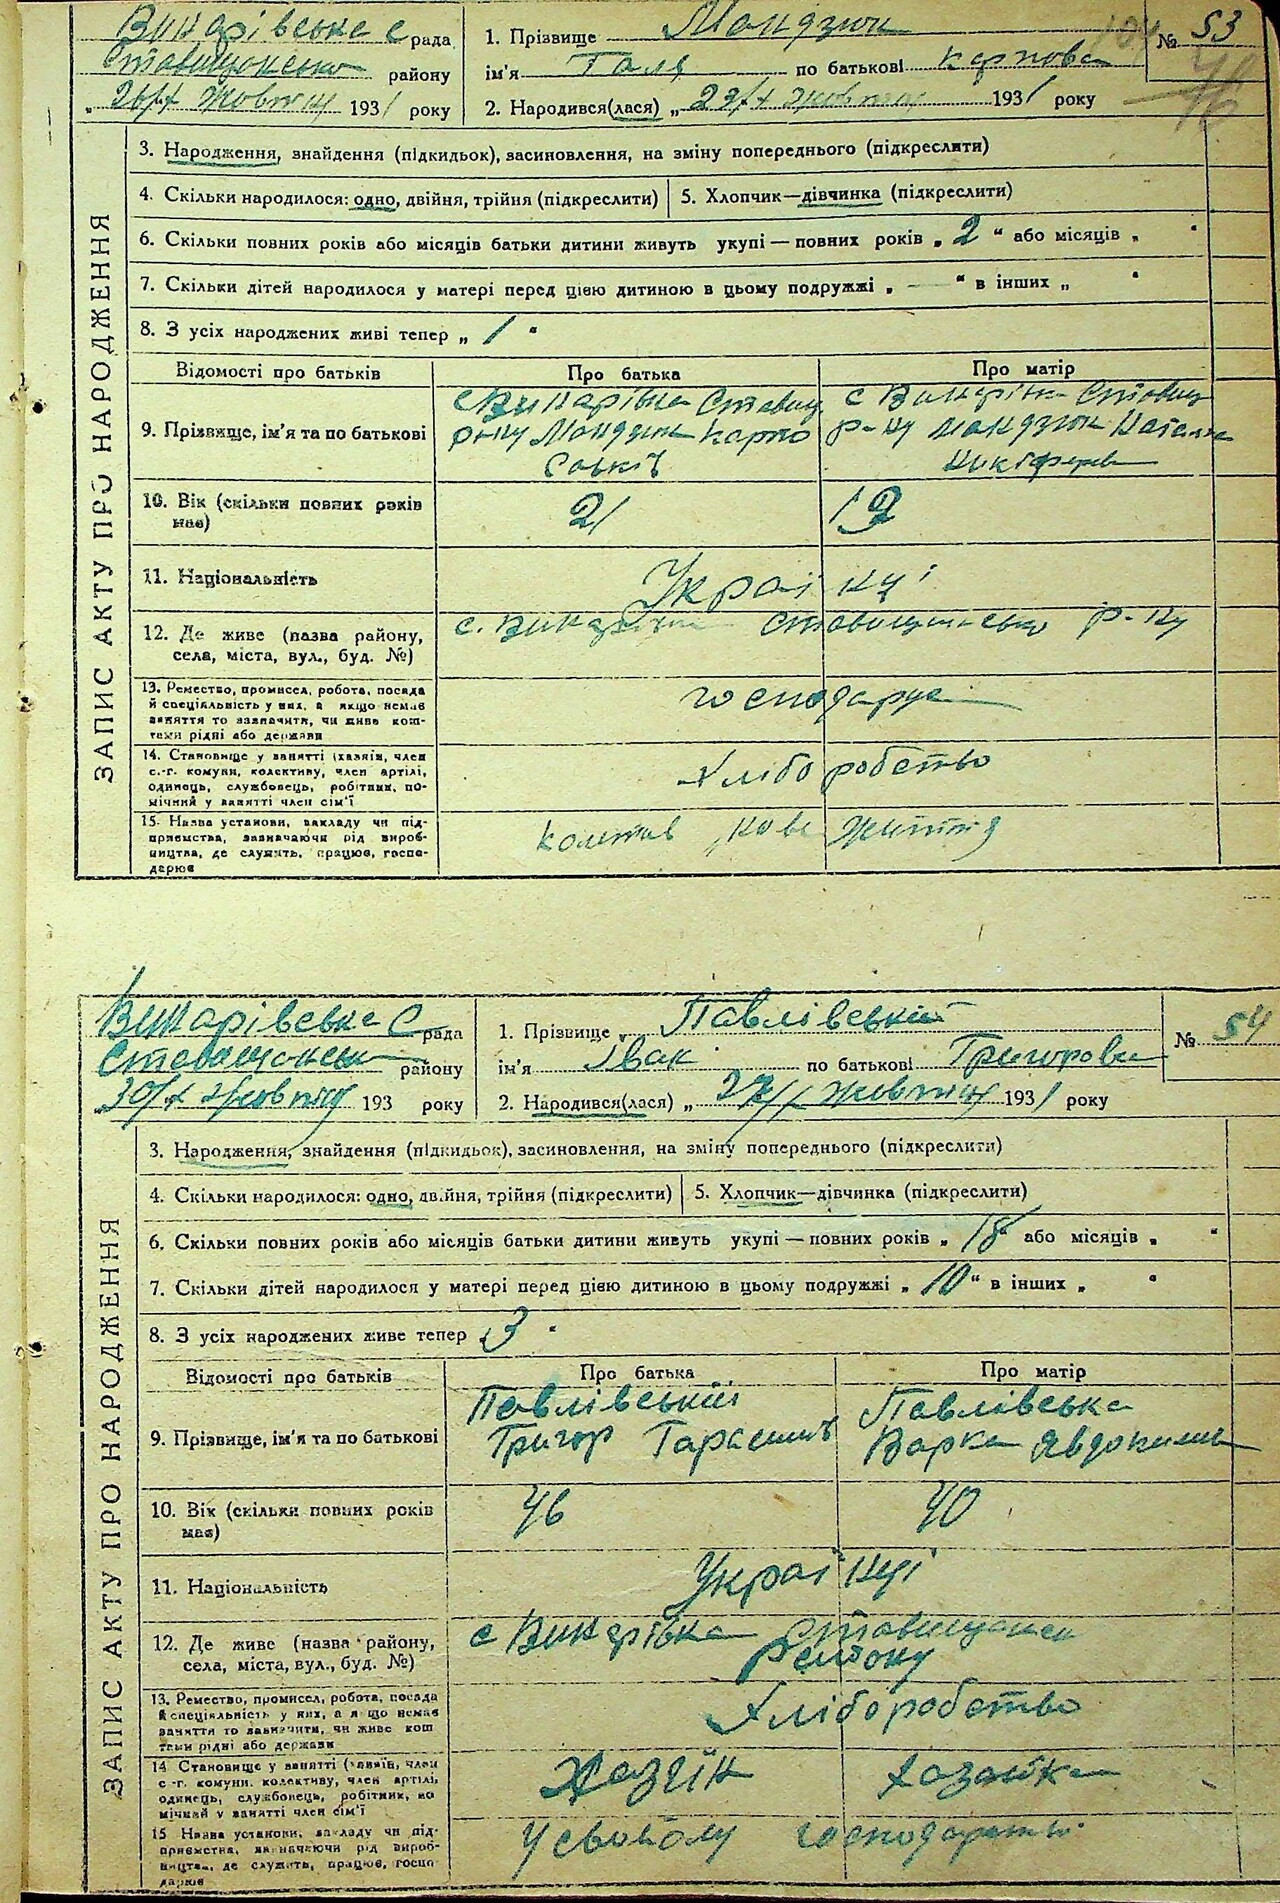 Винарівська с рада
Ставищенсько району
„26/X Жовтня 1931 року
1. Прізвище Мандзюк
ім'я Галя по батькові Карпова
2. Народився(лася) „23/X жовтня 1931 року
№ 53
ЗАПИС АКТУ ПРО НАРОДЖЕННЯ
3. Народження, знайдення (підкидьок), засиновлення, на зміну попереднього (підкреслити)
4. Скільки народилося: одно, двійня, трійня (підкреслити) 5. Хлопчик—дівчинка (підкреслити)
6. Скільки повних років або місяців батьки дитини живуть укупі — повних років „ 2 “ або місяців „ “
7. Скільки дітей народилося у матері перед цією дитиною в цьому подружжі „ — “ в інших „ “
8. З усіх народжених живі тепер „ 1 “
Відомості про батьків Про батька Про матір
9. Прізвище, ім'я та по батькові
с Винарівка Ставищ
р-ну Мандзюк Карпо
с Винарівка Ставищ
р-ну Мандзюк Наталка
10. Вік (скільки повних років має) 21 19
11. Національність Українці
12. Де живе (назва району, села, міста, вул., буд. №) с. Винарівка Ставищенсько р-ну
13. Ремество, промисел, робота, посада
й спеціяльність у них, а якщо немає
заняття то зазначити, чи живе кош-
тами рідні або держави
господарує
14. Становище у занятті (хазяїн, член
с.-г. комуни, колективу, член артілі,
одинець, службовець, робітник, по-
мічний у занятті член сім'ї
Хліборобство
15. Назва установи, закладу чи під-
приємства, зазначаючи рід вироб-
ництва, де служить, працює, госпо-
дарює
Колектив „Нове Життя
Винарівська с рада
Ставищенськ району
„30/X Жовтня 193 року
1. Прізвище „Павлівський
ім'я Іван по батькові Григорова
2. Народився(лася) „ 27/X Жовтня 1931 року
№ 54
ЗАПИС АКТУ ПРО НАРОДЖЕННЯ
3. Народження, знайдення (підкидьок), засиновлення, на зміну попереднього (підкреслити)
4. Скільки народилося: одно, двійня, трійня (підкреслити) 5. Хлопчик—дівчинка (підкреслити)
6. Скільки повних років або місяців батьки дитини живуть укупі — повних років „ 18 “ або місяців „ “
7. Скільки дітей народилося у матері перед цією дитиною в цьому подружжі „ 10 “ в інших „ “
8. З усіх народжених живе тепер „ 3 “
Відомості про батьків Про батька Про матір
9. Прізвище, ім'я та по батькові
Павлівський
Григор Тарасович
Павлівська
Варка Явдокимовна
10. Вік (скільки повних років має) 46 40
11. Національність Українці
12. Де живе (назва району, села, міста, вул., буд. №) с Винарівка Ставищанськ
Району
13. Ремество, промисел, робота, посада
й спеціяльність у них, а якщо немає
заняття то зазначити, чи живе кош
тами рідні або держави
Хліборобство
14 Становище у занятті (хазяїн, член
с-г. комуни, колективу, член артілі,
одинець, службовець, робітник, по
мічний у занятті член сім'ї
Хазяїн Хазяйка
15 Назва установи, закладу чи під-
приємства, зазначаючи рід вироб-
ництва, де служить, працює, госпо-
дарює
У свойому господарстві